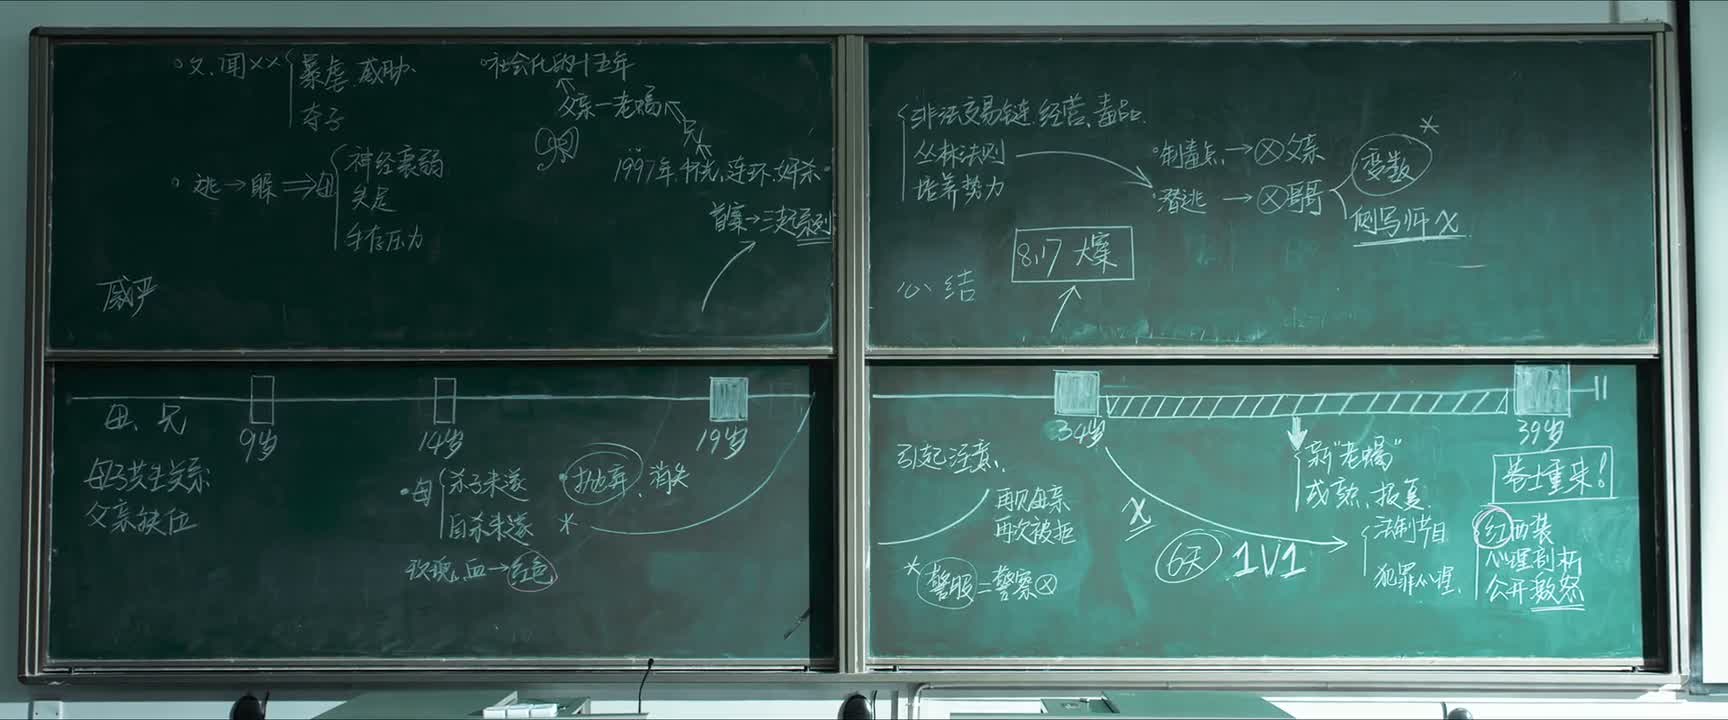 父.闻××
暴虐.威胁.
夺子
逃→躲⇒母
神经衰弱
失足
生存压力
威严
社会化的十五年
父亲—老蝎
兄
1997年,怀光,连环,奸杀.
首案→三起系列
非法交易链.经营.毒品.
丛林法则
培养势力
制毒点→⊗父亲
潜逃→⊗哥哥
变数
*
侧写师X
8.17 大案
心结
母、兄
9岁
14岁
19岁
母子共生关系
父亲缺位
母
杀子未遂
自杀未遂
抛弃、消失
*
玫瑰,血→红色
34岁
39岁
引起注意.
再见母亲
再次被拒
* 警服=警察⊗
X
6天
1V1
新"老蝎"
成熟、报复.
法制节目
犯罪心理.
卷土重来!
红西装
心理剖析
公开激怒